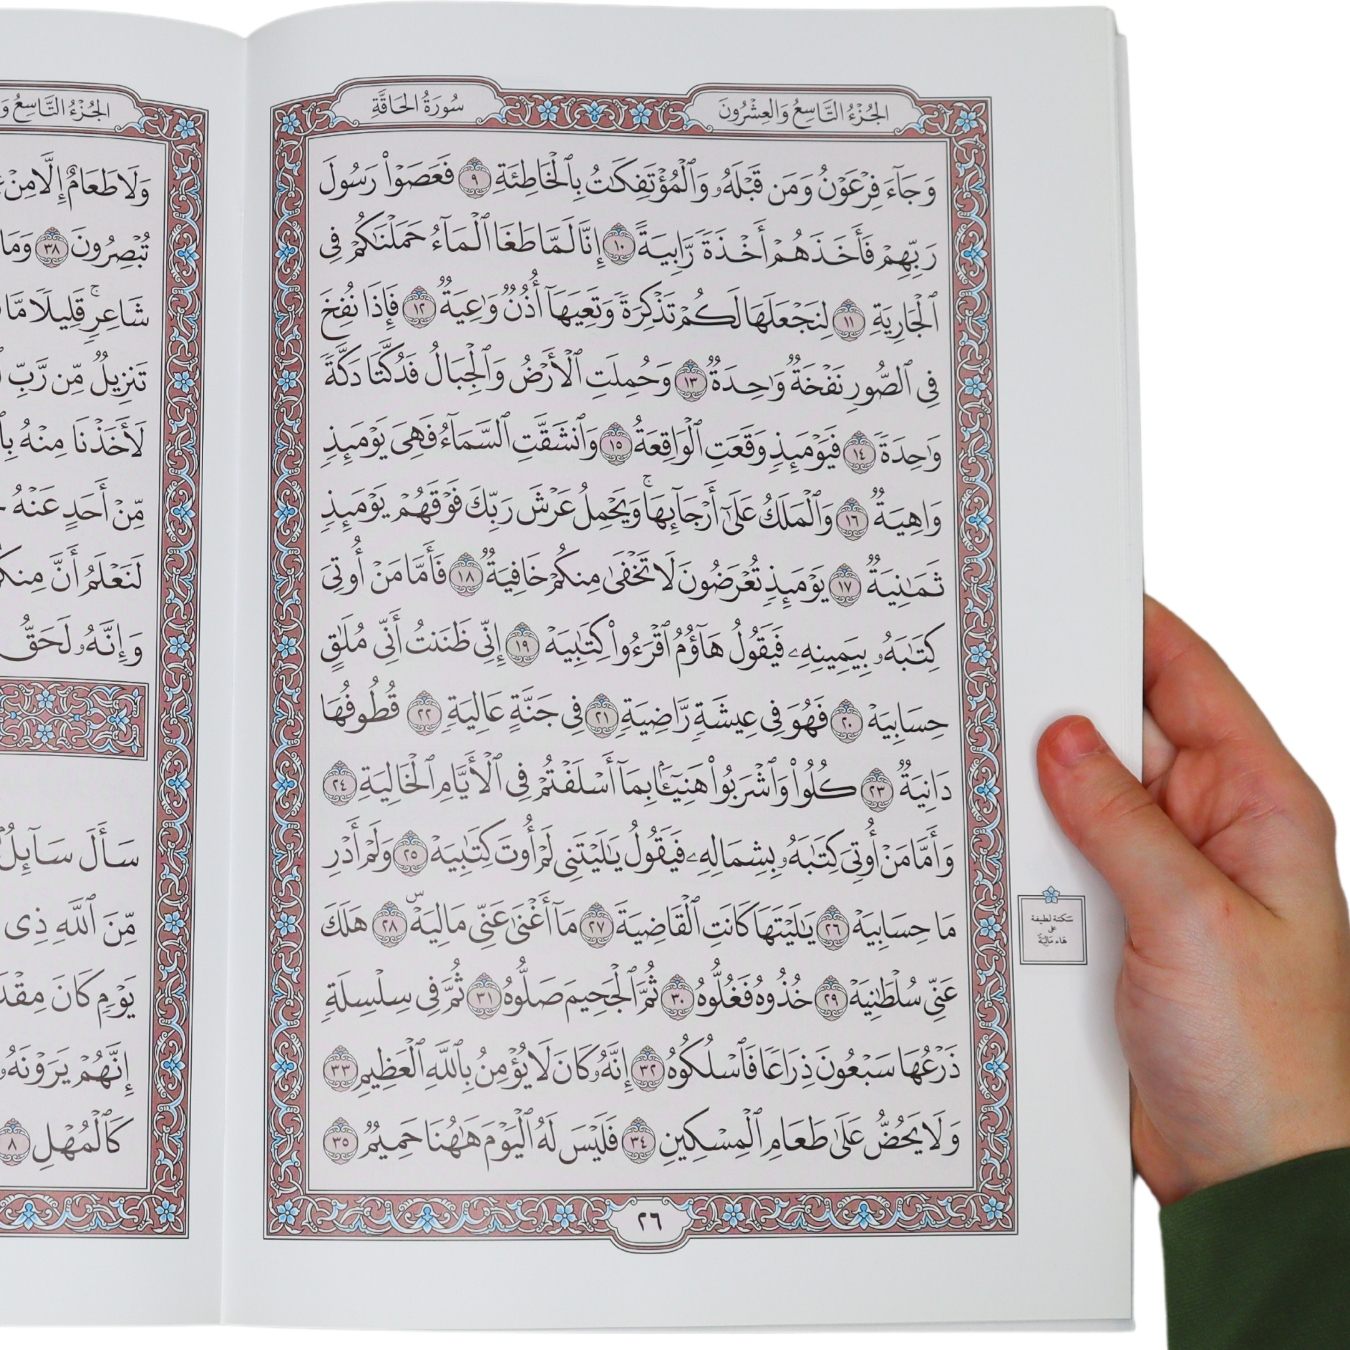 الجُزْءُ التَّاسِعُ وَالعِشْرُونَ
سُورَةُ الحَاقَّةِ
وَجَآءَ فِرْعَوْنُ وَمَن قَبْلَهُۥ وَٱلْمُؤْتَفِكَٰتُ بِٱلْخَاطِئَةِ ٩ فَعَصَوْا۟ رَسُولَ
رَبِّهِمْ فَأَخَذَهُمْ أَخْذَةً رَّابِيَةً ١٠ إِنَّا لَمَّا طَغَا ٱلْمَآءُ حَمَلْنَٰكُمْ فِى
ٱلْجَارِيَةِ ١١ لِنَجْعَلَهَا لَكُمْ تَذْكِرَةً وَتَعِيَهَآ أُذُنٌ وَٰعِيَةٌ ١٢ فَإِذَا نُفِخَ
فِى ٱلصُّورِ نَفْخَةٌ وَٰحِدَةٌ ١٣ وَحُمِلَتِ ٱلْأَرْضُ وَٱلْجِبَالُ فَدُكَّتَا دَكَّةً
وَٰحِدَةً ١٤ فَيَوْمَئِذٍ وَقَعَتِ ٱلْوَاقِعَةُ ١٥ وَٱنشَقَّتِ ٱلسَّمَآءُ فَهِىَ يَوْمَئِذٍ
وَاهِيَةٌ ١٦ وَٱلْمَلَكُ عَلَىٰٓ أَرْجَآئِهَا ۚ وَيَحْمِلُ عَرْشَ رَبِّكَ فَوْقَهُمْ يَوْمَئِذٍ
ثَمَٰنِيَةٌ ١٧ يَوْمَئِذٍ تُعْرَضُونَ لَا تَخْفَىٰ مِنكُمْ خَافِيَةٌ ١٨ فَأَمَّا مَنْ أُوتِىَ
كِتَٰبَهُۥ بِيَمِينِهِۦ فَيَقُولُ هَآؤُمُ ٱقْرَءُوا۟ كِتَٰبِيَهْ ١٩ إِنِّى ظَنَنتُ أَنِّى مُلَٰقٍ
حِسَابِيَهْ ٢٠ فَهُوَ فِى عِيشَةٍ رَّاضِيَةٍ ٢١ فِى جَنَّةٍ عَالِيَةٍ ٢٢ قُطُوفُهَا
دَانِيَةٌ ٢٣ كُلُوا۟ وَٱشْرَبُوا۟ هَنِيٓـًٔۢا بِمَآ أَسْلَفْتُمْ فِى ٱلْأَيَّامِ ٱلْخَالِيَةِ ٢٤
وَأَمَّا مَنْ أُوتِىَ كِتَٰبَهُۥ بِشِمَالِهِۦ فَيَقُولُ يَٰلَيْتَنِى لَمْ أُوتَ كِتَٰبِيَهْ ٢٥ وَلَمْ أَدْرِ
مَا حِسَابِيَهْ ٢٦ يَٰلَيْتَهَا كَانَتِ ٱلْقَاضِيَةَ ٢٧ مَآ أَغْنَىٰ عَنِّى مَالِيَهْ ۜ ٢٨ هَلَكَ
عَنِّى سُلْطَٰنِيَهْ ٢٩ خُذُوهُ فَغُلُّوهُ ٣٠ ثُمَّ ٱلْجَحِيمَ صَلُّوهُ ٣١ ثُمَّ فِى سِلْسِلَةٍ
ذَرْعُهَا سَبْعُونَ ذِرَاعًا فَٱسْلُكُوهُ ٣٢ إِنَّهُۥ كَانَ لَا يُؤْمِنُ بِٱللَّهِ ٱلْعَظِيمِ ٣٣
وَلَا يَحُضُّ عَلَىٰ طَعَامِ ٱلْمِسْكِينِ ٣٤ فَلَيْسَ لَهُ ٱلْيَوْمَ هَٰهُنَا حَمِيمٌ ٣٥
سكتة لطيفة
على
هاء مَالِيَهْ
٢٦
الجُزْءُ التَّاسِعُ
وَلَا طَعَامٌ إِلَّا مِنْ
تُبْصِرُونَ ٣٨ وَمَا
شَاعِرٍ ۚ قَلِيلًا مَّا
تَنزِيلٌ مِّن رَّبِّ
لَأَخَذْنَا مِنْهُ
مِّنْ أَحَدٍ عَنْهُ
لَنَعْلَمُ أَنَّ مِنكُم
وَإِنَّهُۥ لَحَقُّ
سَأَلَ سَآئِلٌۢ
مِّنَ ٱللَّهِ ذِى
يَوْمٍ كَانَ
إِنَّهُمْ يَرَوْنَهُۥ
كَٱلْمُهْلِ ٨